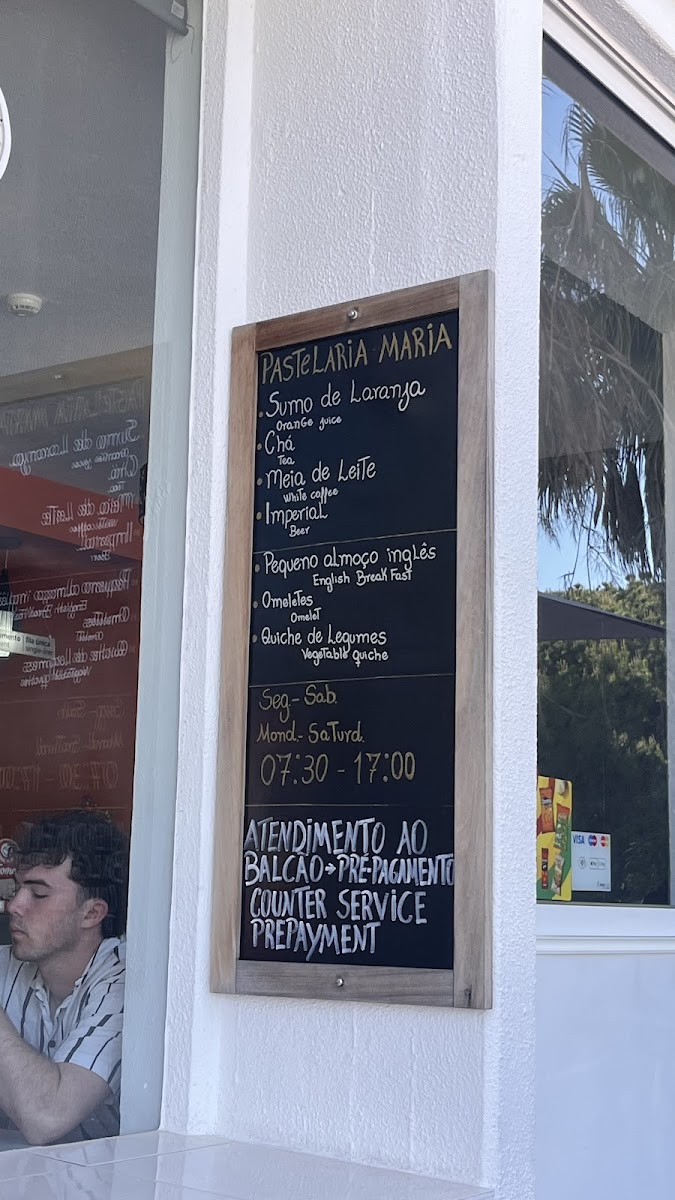 PASTELARIA MARIA
• Sumo de Laranja
Orange juice
• Chá
Tea
• Meia de Leite
White coffee
• Imperial
Beer
• Pequeno almoço inglês
English BreakFast
• Omeletes
Omelet
• Quiche de Legumes
Vegetable quiche
Seg.- Sab.
Mond.- Saturd.
07:30 - 17:00
ATENDIMENTO AO
BALCÃO → PRÉ-PAGAMENTO
COUNTER SERVICE
PREPAYMENT
fila única
VISA